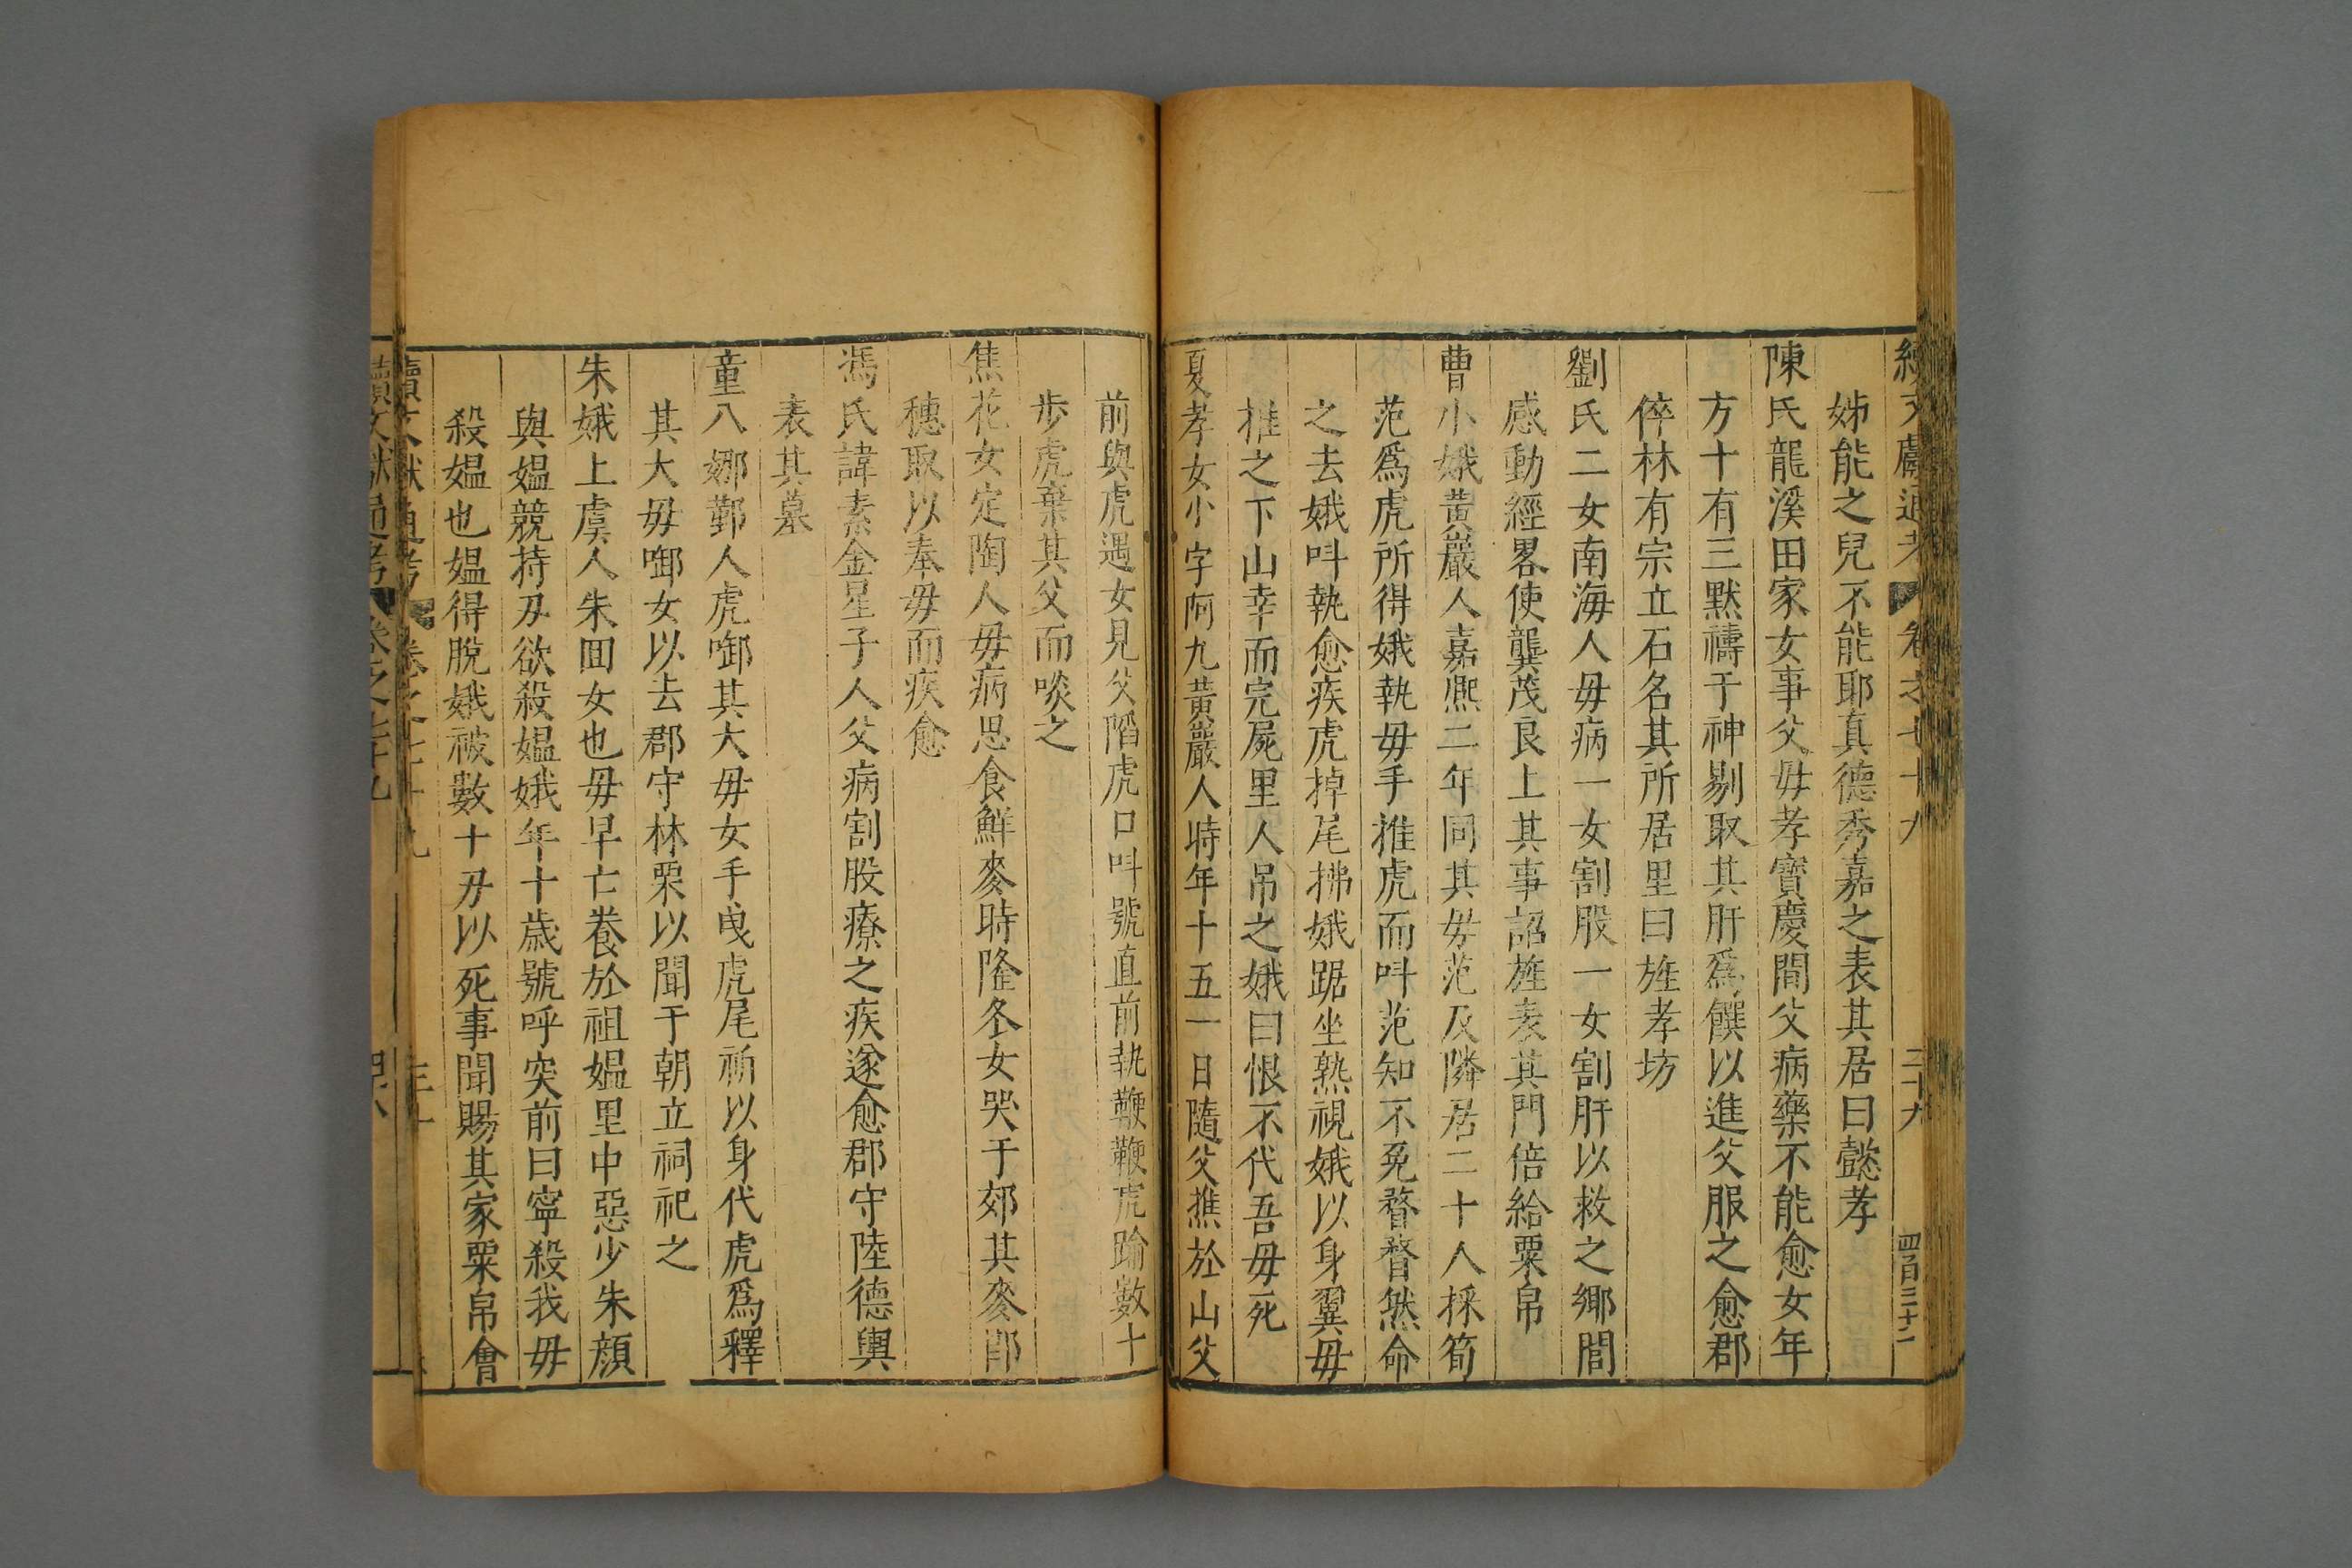 續文獻通考 卷之七十九 二十九 四百三十二
姊能之兒不能耶真德秀嘉之表其居曰懿孝
陳氏龍溪田家女事父毋孝寶慶間父病藥不能愈女年
方十有三默禱于神剔取其肝爲饌以進父服之愈郡
倅林有宗立石名其所居里曰旌孝坊
劉氏二女南海人毋病一女割股一女割肝以救之鄉閭
感動經畧使龔茂良上其事詔旌表其門倍給粟帛
曹小娥黃巖人嘉熙二年同其毋范及隣居二十人採筍
范爲虎所得娥執毋手推虎而呌范知不免瞀瞀然命
之去娥呌執愈疾虎掉尾拂娥踞坐熟視娥以身翼毋
推之下山幸而完屍里人吊之娥曰恨不代吾毋死
夏孝女小字阿九黃巖人時年十五一日隨父樵於山父
前與虎遇女見父䧟虎口呌號直前執鞭鞭虎踰數十
步虎棄其父而啖之
焦花女定陶人毋病思食鮮麥時隆冬女哭于郊其麥卽
穗取以奉毋而疾愈
馮氏諱素金星子人父病割股療之疾遂愈郡守陸德輿
表其墓
童八娜鄞人虎啣其大毋女手曳虎尾祈以身代虎爲釋
其大毋啣女以去郡守林栗以聞于朝立祠祀之
朱娥上虞人朱回女也毋早亡養於祖媪里中惡少朱顔
與媪競持刃欲殺媪娥年十歲號呼突前曰寧殺我毋
殺媪也媪得脫娥被數十刃以死事聞賜其家粟帛會
續文獻通考 卷之七十九
續文獻通考 卷之七十九